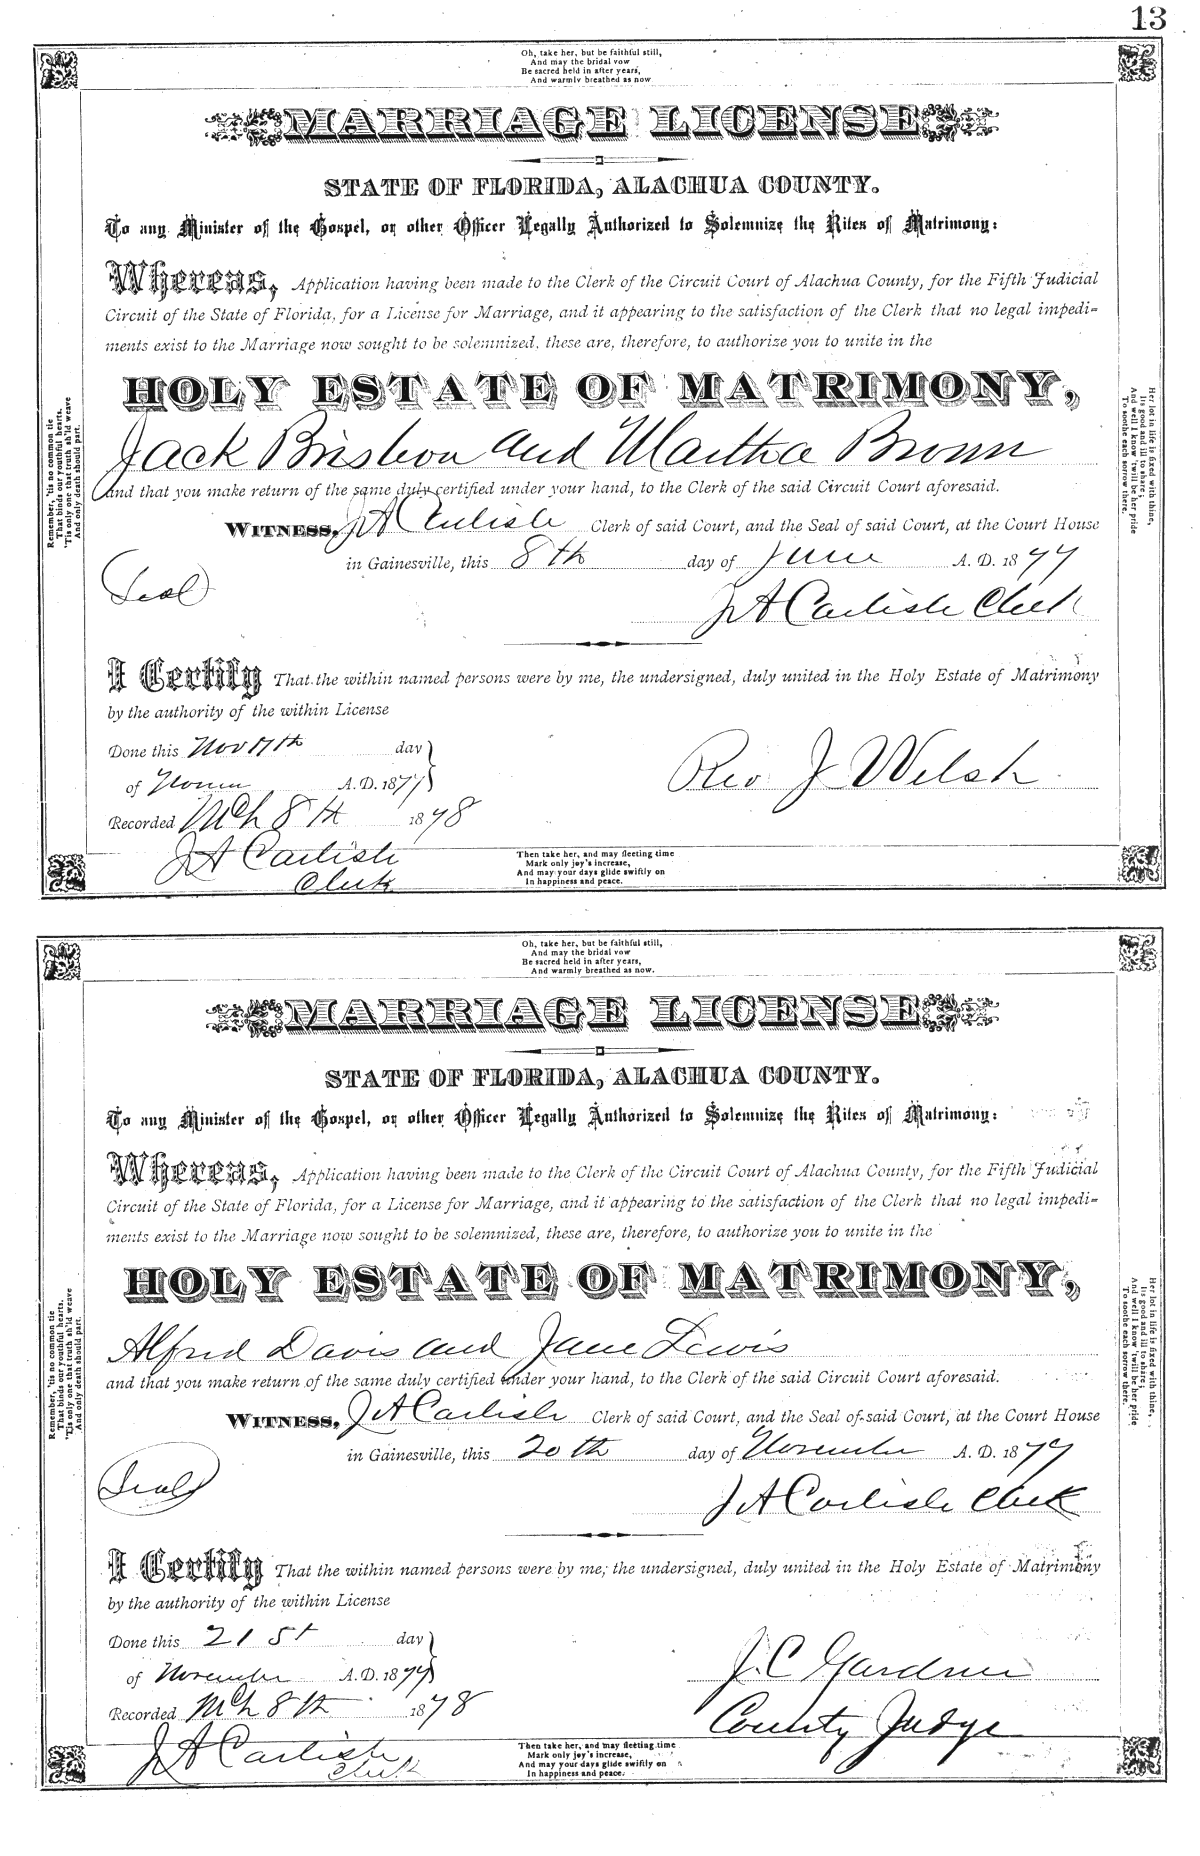 13
Oh, take her, but be faithful still,
And may the bridal vow
Be sacred held in after years,
And warmly breathed as now
MARRIAGE LICENSE
STATE OF FLORIDA, ALACHUA COUNTY.
To any Minister of the Gospel, or other Officer Legally Authorized to Solemnize the Rites of Matrimony:
Whereas, Application having been made to the Clerk of the Circuit Court of Alachua County, for the Fifth Judicial
Circuit of the State of Florida, for a License for Marriage, and it appearing to the satisfaction of the Clerk that no legal impedi-
ments exist to the Marriage now sought to be solemnized, these are, therefore, to authorize you to unite in the
HOLY ESTATE OF MATRIMONY,
Jack Brisbon and Martha Brown
and that you make return of the same duly certified under your hand, to the Clerk of the said Circuit Court aforesaid.
WITNESS, J A Carlisle Clerk of said Court, and the Seal of said Court, at the Court House
in Gainesville, this 8th day of June A. D. 1877
(Seal)
J A Carlisle Clerk
I Certify That the within named persons were by me, the undersigned, duly united in the Holy Estate of Matrimony
by the authority of the within License
Done this Nov 17th day
of A.D. 1877
Rev J Welsh
Recorded Mch 8th 1878
J A Carlisle
Clerk
Then take her, and may fleeting time
Mark only joy's increase,
And may your days glide swiftly on
In happiness and peace.
Remember, 'tis no common tie
That binds our youthful hearts,
'Tis only one that truth sh'ld weave
And only death should part.
Her lot in life is fixed with thine,
Its good and ill to share;
And well I know 'twill be her pride
To soothe each sorrow there.
Oh, take her, but be faithful still,
And may the bridal vow
Be sacred held in after years,
And warmly breathed as now.
MARRIAGE LICENSE
STATE OF FLORIDA, ALACHUA COUNTY.
To any Minister of the Gospel, or other Officer Legally Authorized to Solemnize the Rites of Matrimony:
Whereas, Application having been made to the Clerk of the Circuit Court of Alachua County, for the Fifth Judicial
Circuit of the State of Florida, for a License for Marriage, and it appearing to the satisfaction of the Clerk that no legal impedi-
ments exist to the Marriage now sought to be solemnized, these are, therefore, to authorize you to unite in the
HOLY ESTATE OF MATRIMONY,
Alfred Davis and Jane Lewis
and that you make return of the same duly certified under your hand, to the Clerk of the said Circuit Court aforesaid.
WITNESS, J A Carlisle Clerk of said Court, and the Seal of said Court, at the Court House
in Gainesville, this 20th day of November A. D. 1877
(Seal)
J A Carlisle Clerk
I Certify That the within named persons were by me, the undersigned, duly united in the Holy Estate of Matrimony
by the authority of the within License
Done this 21st day
of November A.D. 1877
J. C Gardner
Recorded Mch 8th 1878
County Judge
J A Carlisle
Clerk
Then take her, and may fleeting time
Mark only joy's increase,
And may your days glide swiftly on
In happiness and peace.
Remember, 'tis no common tie
That binds our youthful hearts,
'Tis only one that truth sh'ld weave
And only death should part.
Her lot in life is fixed with thine,
Its good and ill to share;
And well I know 'twill be her pride
To soothe each sorrow there.